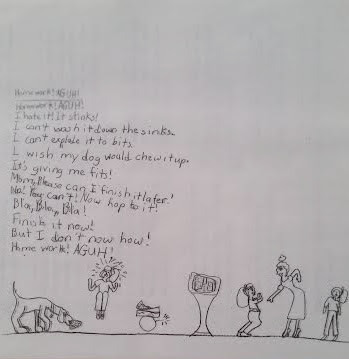 Home work! AGUH!
Homework! AGUH!
I hate it! It stinks!
I can't wash it down the sinks.
I can't explode it to bits.
I wish my dog would chew it up.
It's giving me fits!
Mom, Please can I finish it later?
No! You can't! Now hop to it!
Bla, Bla, Bla!
Finish it now!
But I don't now how!
Home work! AGUH!